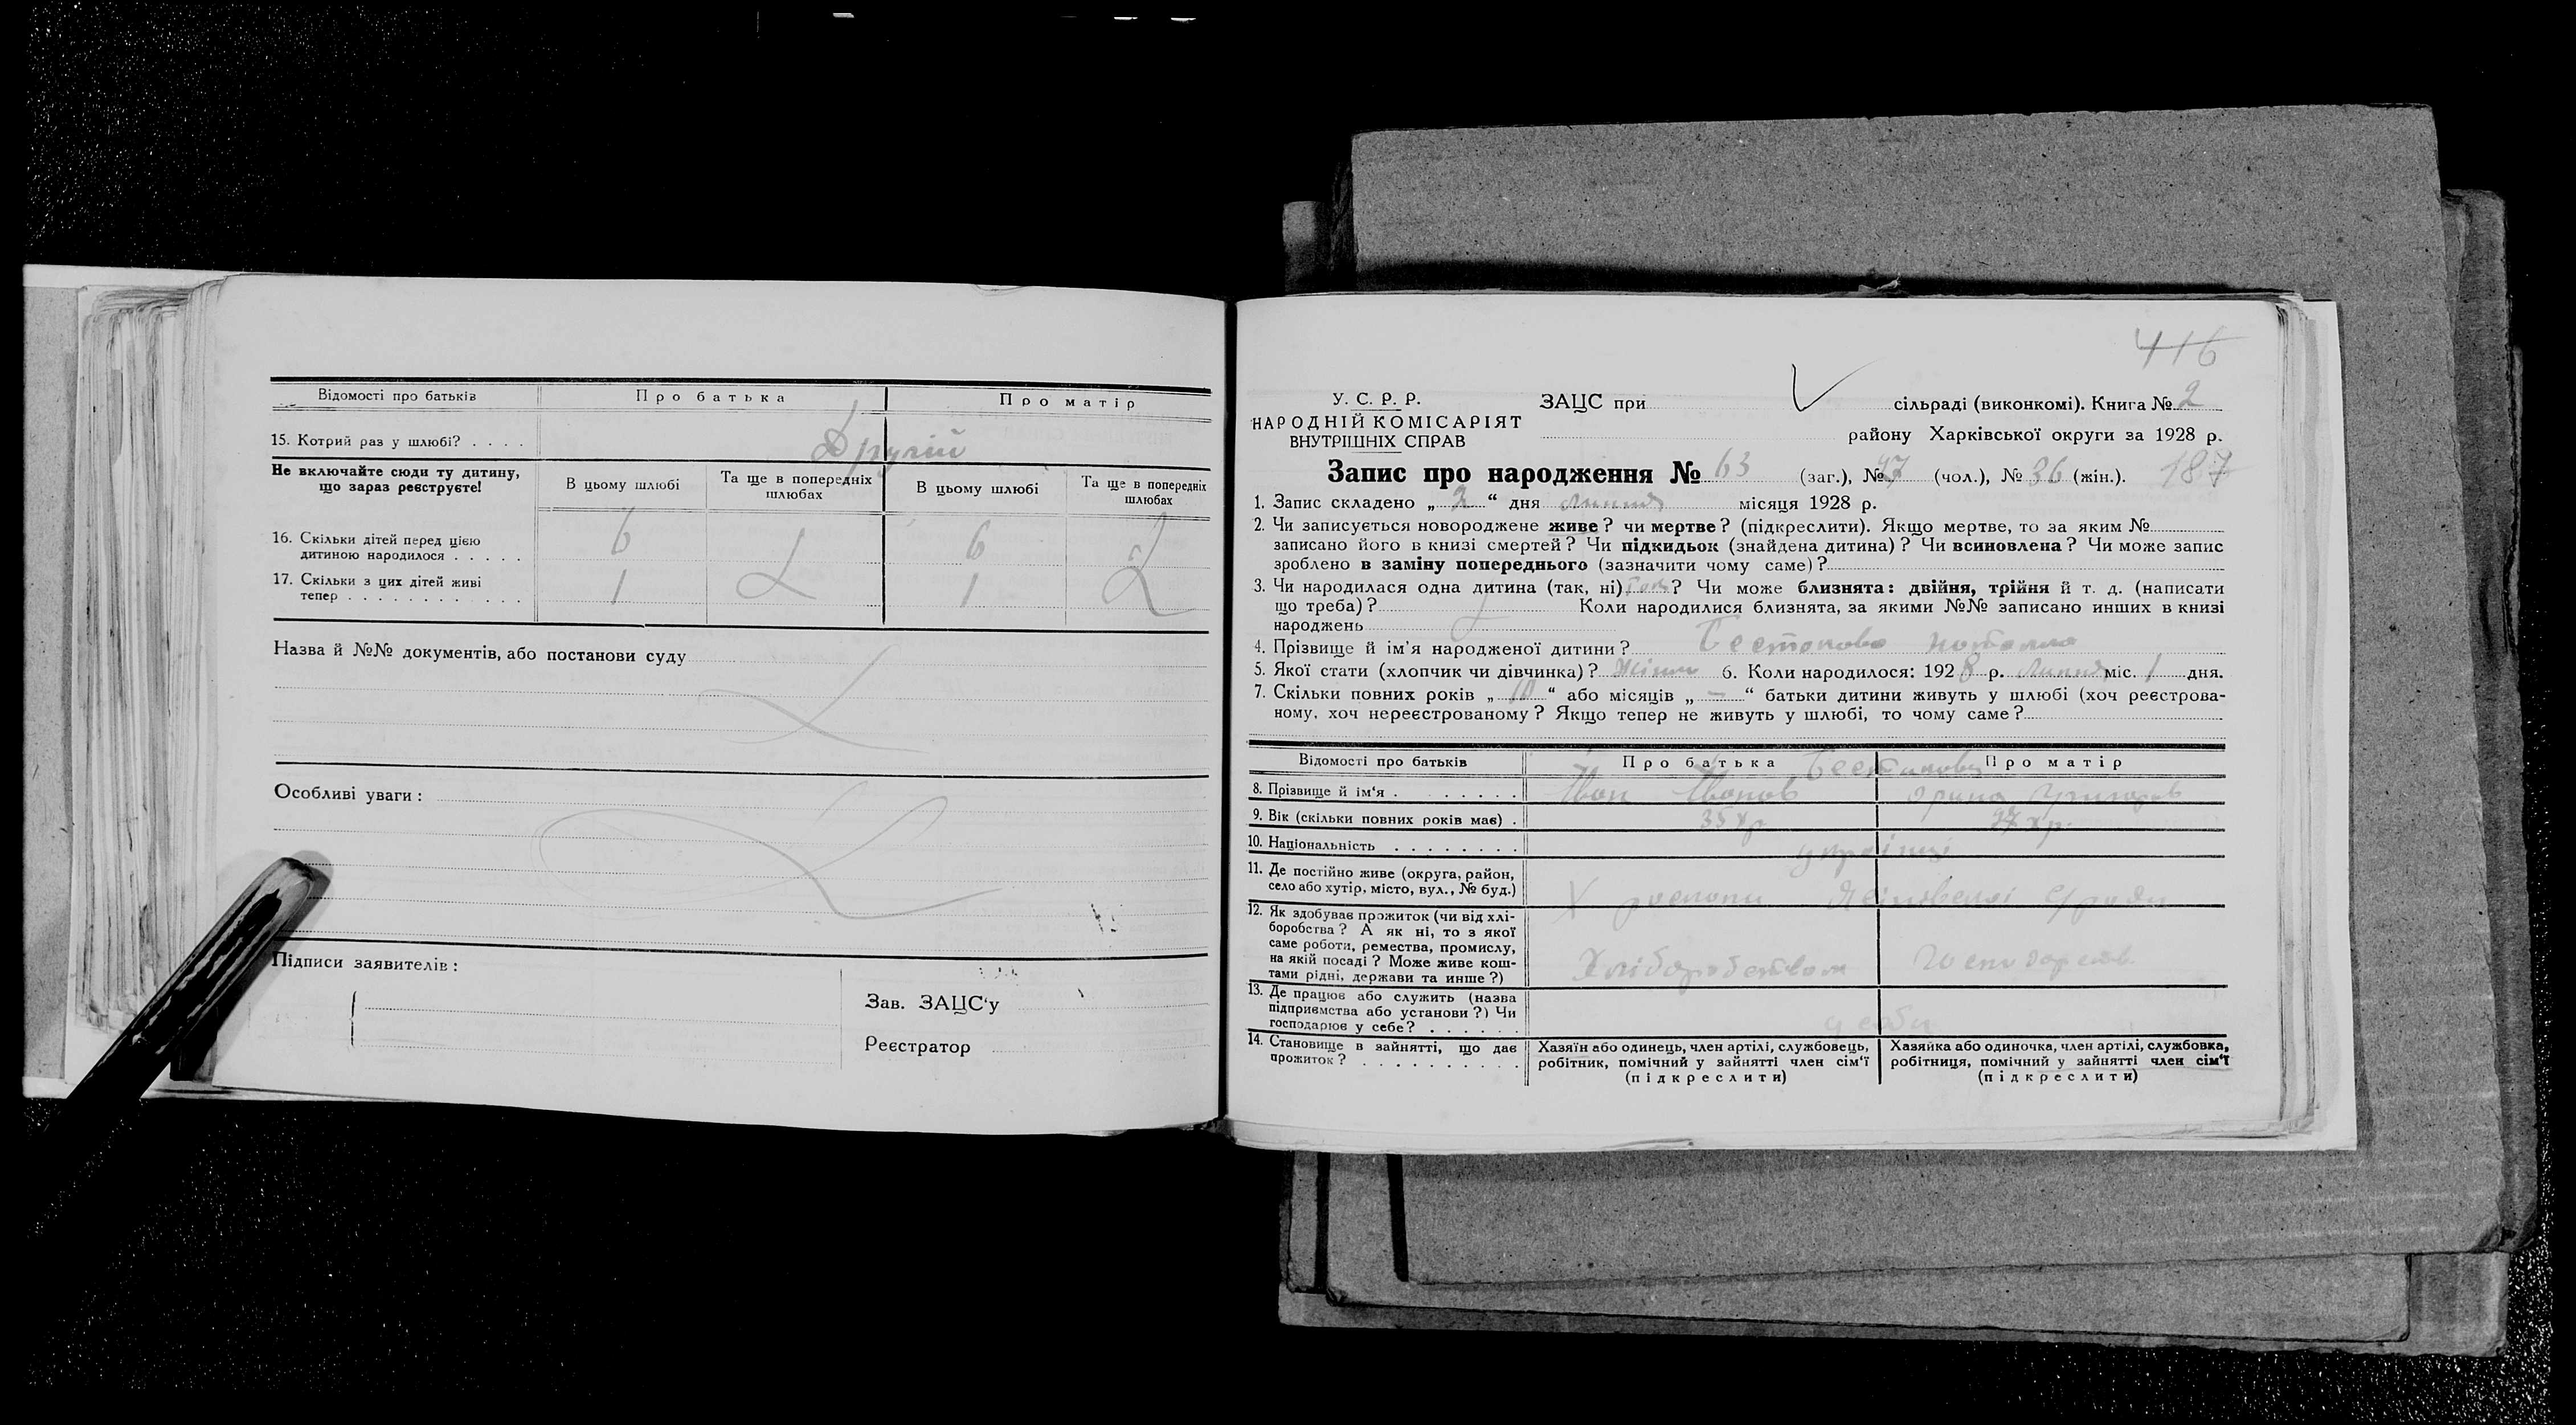 Відомості про батьків Про батька Про матір
15. Котрий раз у шлюбі? . . . .
Другий
Не включайте сюди ту дитину, що зараз реєструєте!
В цьому шлюбі Та ще в попередніх шлюбах В цьому шлюбі Та ще в попередніх шлюбах
16. Скільки дітей перед цією
дитиною народилося . . . . . 6 6
17. Скільки з цих дітей живі
тепер . . . . . . . . . . . . 1 1
Назва й №№ документів, або постанови суду
Особливі уваги :
Підписи заявителів :
Зав. ЗАЦС‘у
Реєстратор
416
У. С. Р. Р.
НАРОДНІЙ КОМІСАРІЯТ
ВНУТРІШНІХ СПРАВ
ЗАЦС при сільраді (виконкомі). Книга № 2
району Харківської округи за 1928 р.
Запис про народження № 63 (заг.), № (чол.), № 36 (жін.). 187
1. Запис складено „ 2 “ дня липня місяця 1928 р.
2. Чи записується новороджене живе? чи мертве? (підкреслити). Якщо мертве, то за яким №
записано його в книзі смертей? Чи підкидьок (знайдена дитина)? Чи всиновлена? Чи може запис
зроблено в заміну попереднього (зазначити чому саме)?
3. Чи народилася одна дитина (так, ні) так? Чи може близнята: двійня, трійня й т. д. (написати
що треба)? Коли народилися близнята, за якими №№ записано инших в книзі
народжень
4. Прізвище й ім’я народженої дитини?
5. Якої стати (хлопчик чи дівчинка)? 6. Коли народилося: 1928 р. Липня міс. 1 дня.
7. Скільки повних років „ 10 “ або місяців „ — “ батьки дитини живуть у шлюбі (хоч реєстрова-
ному, хоч нереєстрованому? Якщо тепер не живуть у шлюбі, то чому саме?
Відомості про батьків Про батька Про матір
8. Прізвище й ім‘я . . . . . . . Іван Іванов
9. Вік (скільки повних років має) .
10. Національність . . . . . . . . українці
11. Де постійно живе (округа, район,
село або хутір, місто, вул., № буд.)
12. Як здобуває прожиток (чи від хлі-
боробства? А як ні, то з якої
саме роботи, ремества, промислу,
на якій посаді? Може живе кош-
тами рідні, держави та инше?)
Хліборобством
13. Де працює або служить (назва
підприємства або установи?) Чи
господарює у себе? . . . . . .
у себе
14. Становище в зайнятті, що дає
прожиток? . . . . . . . . . .
Хазяїн або одинець, член артілі, службовець,
робітник, помічний у зайнятті член сім‘ї
(підкреслити)
Хазяйка або одиночка, член артілі, службовка,
робітниця, помічний у зайнятті член сім‘ї
(підкреслити)